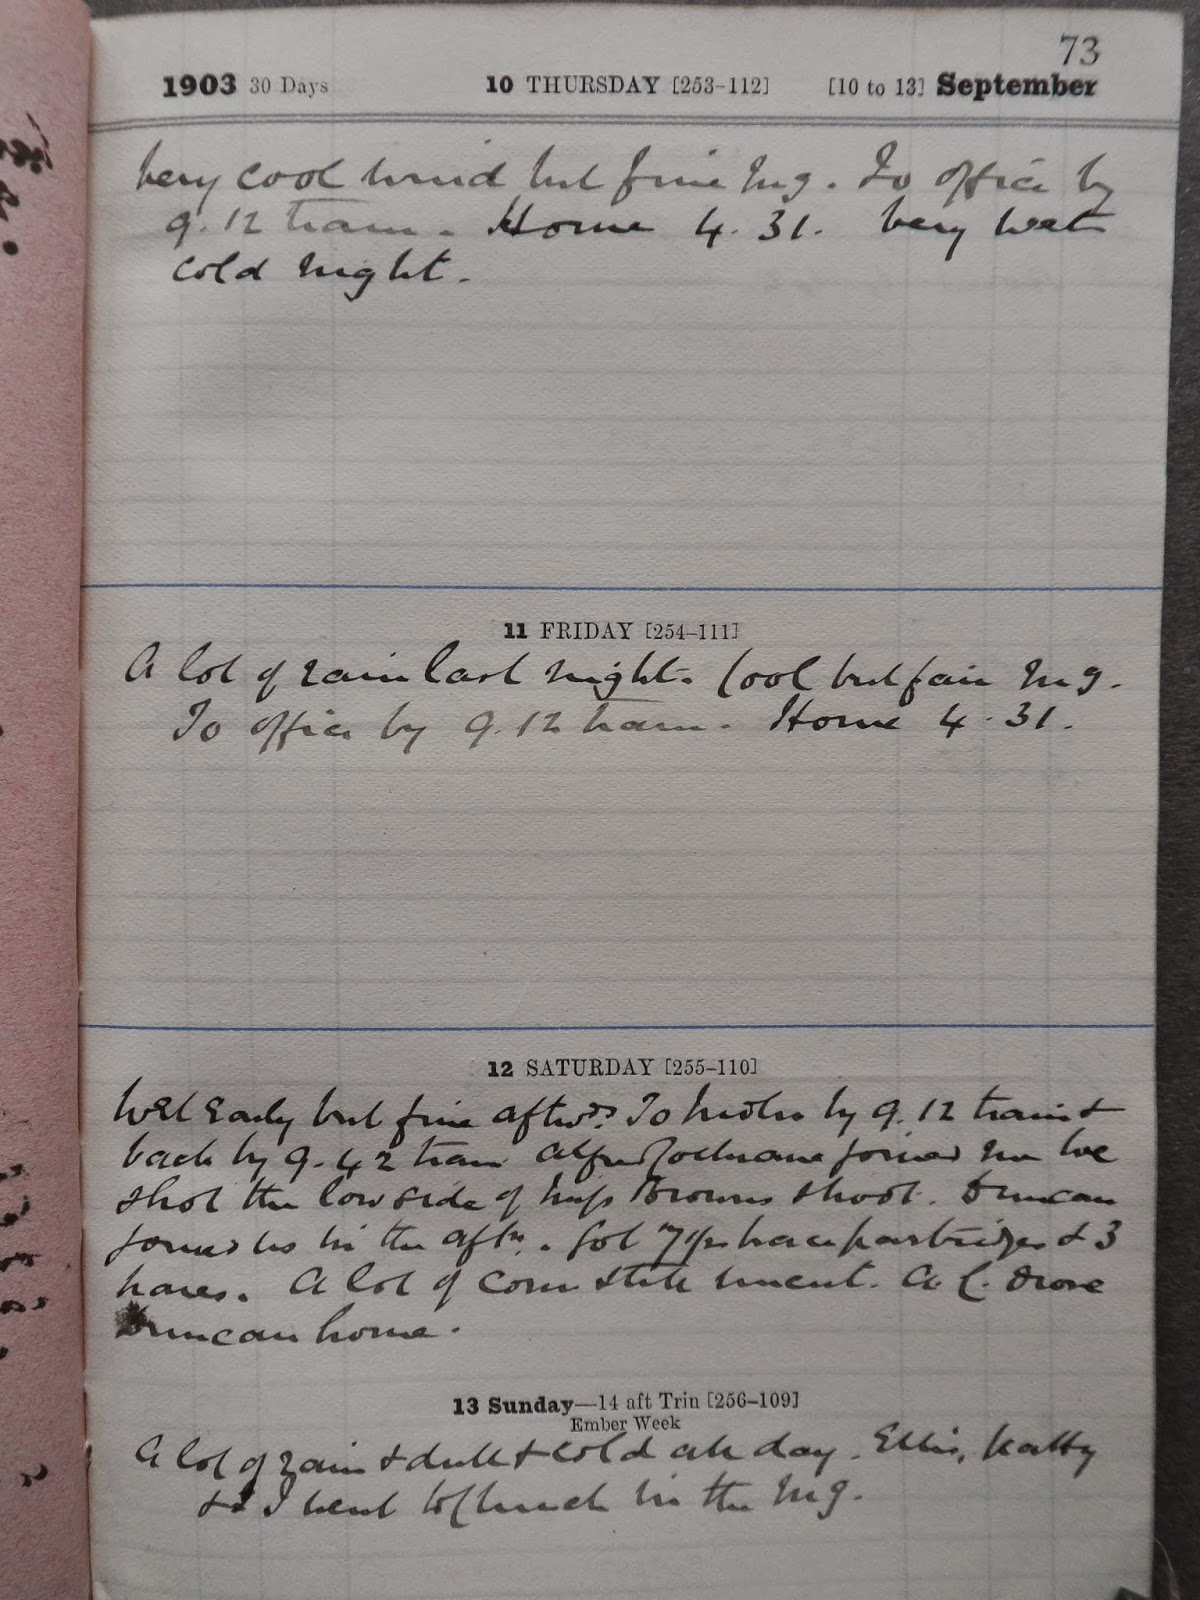 73
1903 30 Days 10 THURSDAY [253-112] [10 to 13] September
Very cool wind but fine mg. To office by
9.12 tram. Home 4.31. Very wet
cold night.
11 FRIDAY [254-111]
A lot of rain last night. Cool but fair mg.
To office by 9.12 tram. Home 4.31.
12 SATURDAY [255-110]
Wet early but fine aftwds. To by 9.12 train &
back by 9.42 train Alfred Cochrane joined me we
shot the low side of Miss Browns shoot. Duncan
joined us in the aftn. Got 7½ brace partridges & 3
hares. A lot of corn still uncut. A.C. drove
Duncan home.
13 Sunday—14 aft Trin [256-109]
Ember Week
A lot of rain & dull & cold all day. Ellis, Katty
& I went to Church in the mg.